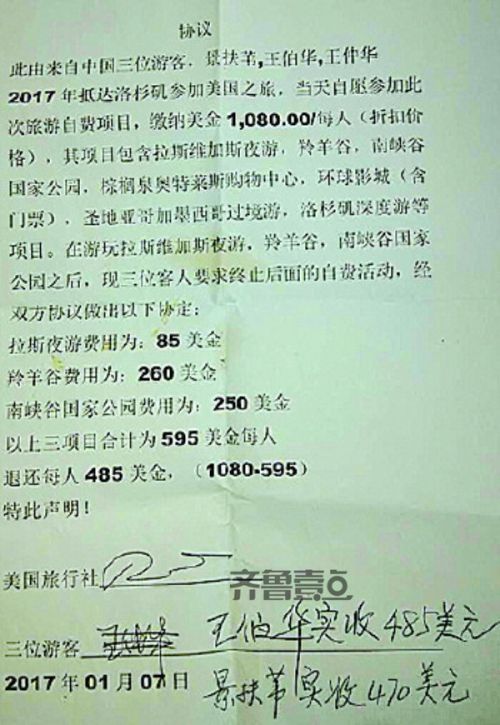 协议
此由来自中国三位游客，景扶苇,王伯华,王仲华
2017年抵达洛杉矶参加美国之旅，当天自愿参加此
次旅游自费项目，缴纳美金1,080.00/每人（折扣价
格），其项目包含拉斯维加斯夜游，羚羊谷，南峡谷
国家公园，棕榈泉奥特莱斯购物中心，环球影城（含
门票），圣地亚哥加墨西哥过境游，洛杉矶深度游等
项目。在游玩拉斯维加斯夜游，羚羊谷，南峡谷国家
公园之后，现三位客人要求终止后面的自费活动，经
双方协议做出以下协定：
拉斯夜游费用为：85美金
羚羊谷费用为：260美金
南峡谷国家公园费用为：250美金
以上三项目合计为595美金每人
退还每人485美金，（1080-595）
特此声明！
美国旅行社
齐鲁壹点
三位游客 王伯华实收485美元
2017年01月07日 景扶苇实收470美元